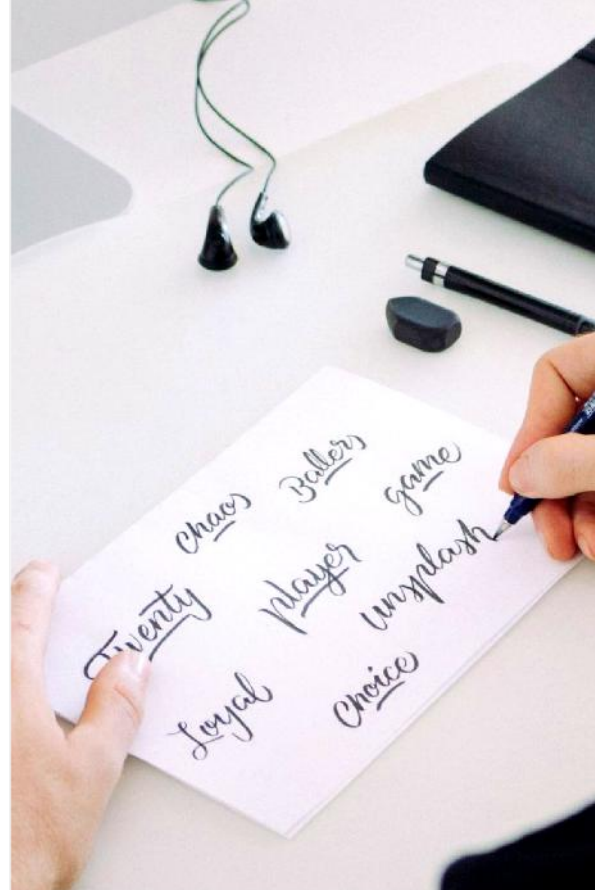 chaos Ballers game
Twenty player unsplash
Loyal Choice